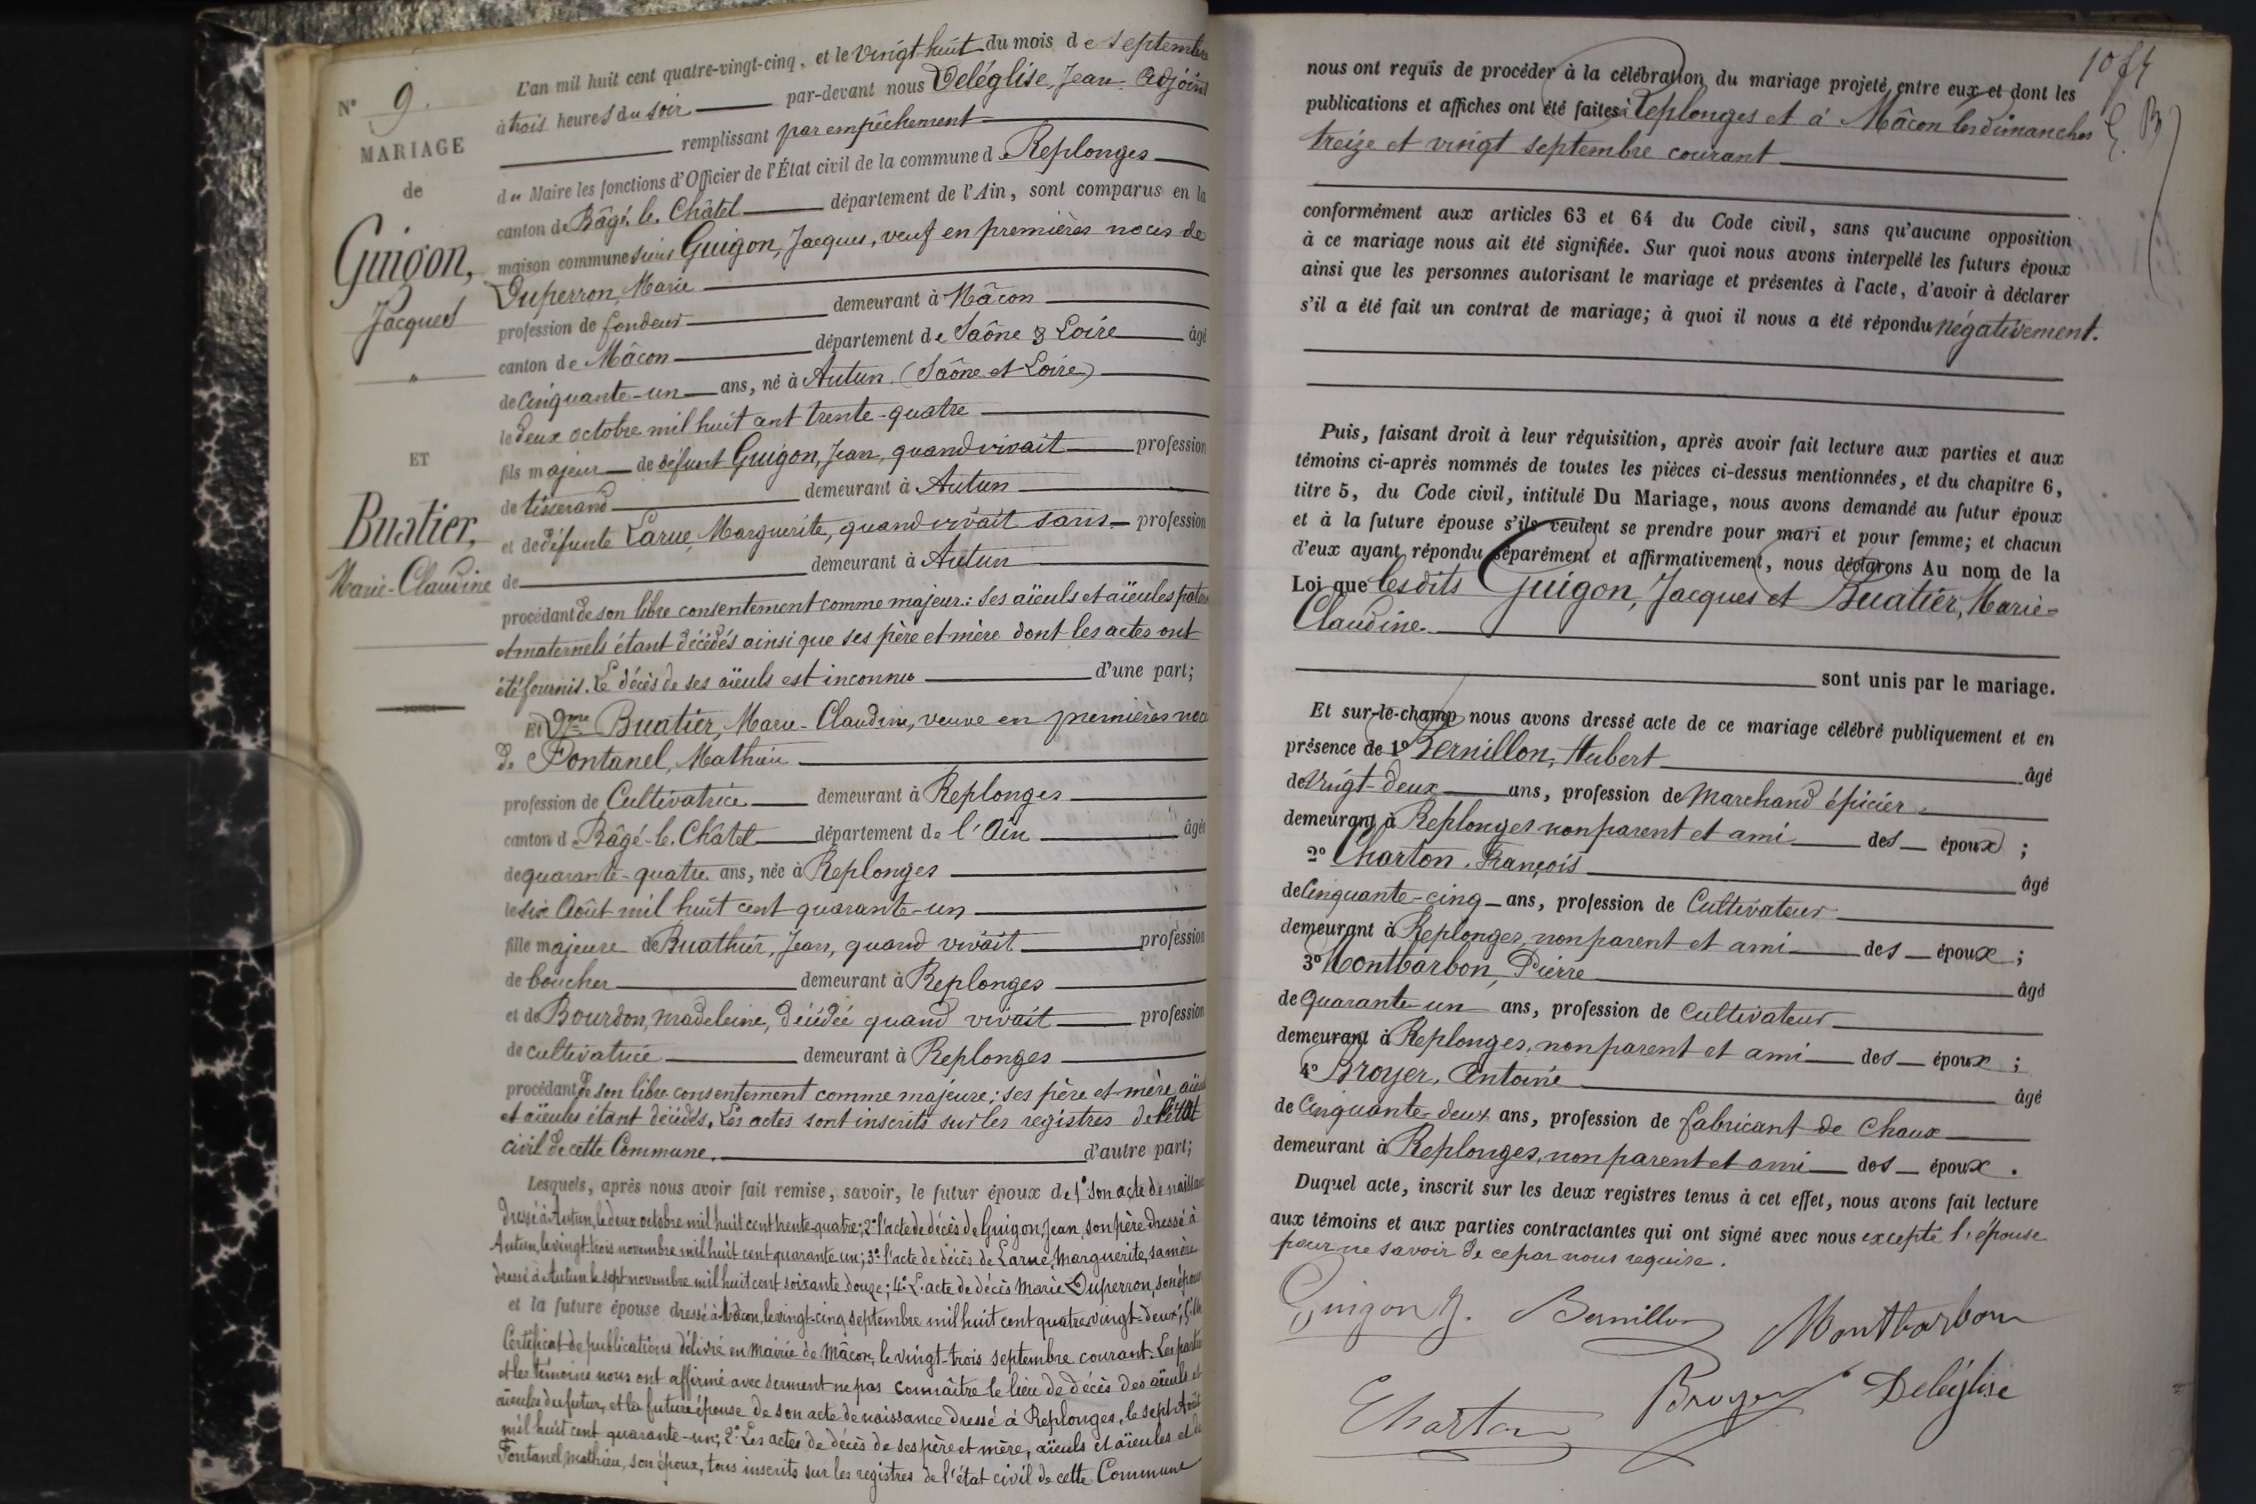 N° 9.
MARIAGE
de
Guigon,
Jacques
ET
Buatier,
Marie-Claudine
L'an mil huit cent quatre-vingt-cinq, et le vingt-huit du mois de septembre
à trois heures du soir par-devant nous Deléglise, Jean, Adjoint
remplissant par empêchement
du Maire les fonctions d'Officier de l'État civil de la commune de Replonges
canton de Bâgé-le-Châtel département de l'Ain, sont comparus en la
maison commune sieur Guigon, Jacques, veuf en premières noces de
Duperron, Marie
profession de fondeur demeurant à Mâcon
canton de Mâcon département de Saône & Loire âgé
de cinquante-un ans, né à Autun (Saône et Loire)
le deux octobre mil huit cent trente-quatre
fils majeur de défunt Guigon, Jean, quand vivait profession
de tisserand demeurant à Autun
et de défunte Larue, Marguerite, quand vivait sans profession
de demeurant à Autun
procédant de son libre consentement comme majeur: ses aïeuls et aïeules pater
et maternels étant décédés ainsi que ses père et mère dont les actes ont
été fournis. Le décès de ses aïeuls est inconnu d'une part;
Et Dme Buatier, Marie-Claudine, veuve en premières noces
de Fontanel, Mathieu
profession de Cultivatrice demeurant à Replonges
canton de Bâgé-le-Châtel département de l'Ain âgée
de quarante-quatre ans, née à Replonges
le six Août mil huit cent quarante-un
fille majeure de Buathier, Jean, quand vivait profession
de boucher demeurant à Replonges
et de Bourdon, Madeleine, décédée quand vivait profession
de cultivatrice demeurant à Replonges
procédant de son libre consentement comme majeure; ses père et mère, aïeuls
et aïeules étant décédés. Les actes sont inscrits sur les registres de l'état
civil de cette Commune. d'autre part;
Lesquels, après nous avoir fait remise, savoir, le futur époux de 1° son acte de naissance
dressé à Autun, le deux octobre mil huit cent trente-quatre; 2° l'acte de décès de Guigon, Jean, son père dressé à
Autun, le vingt-trois novembre mil huit cent quarante-un; 3° l'acte de décès de Larue, Marguerite, sa mère
dressé à Autun le sept novembre mil huit cent soixante douze; 4° L'acte de décès Marie Duperron, son épouse
et la future épouse dressé à Mâcon, le vingt-cinq septembre mil huit cent quatre vingt-deux; 5° Un
Certificat de publications délivré en Mairie de Mâcon, le vingt-trois septembre courant. Les parties
et les témoins nous ont affirmé avec serment ne pas connaître le lieu de décès des aïeuls et
aïeules du futur, et la future épouse de son acte de naissance dressé à Replonges, le sept Août
mil huit cent quarante-un; 2° Les actes de décès de ses père et mère, aïeuls et aïeules et de
Fontanel, Mathieu, son époux, tous inscrits sur les registres de l'état civil de cette Commune
nous ont requis de procéder à la célébration du mariage projeté entre eux et dont les
publications et affiches ont été faites à Replonges et à Mâcon les dimanches
treize et vingt septembre courant
conformément aux articles 63 et 64 du Code civil, sans qu'aucune opposition
à ce mariage nous ait été signifiée. Sur quoi nous avons interpellé les futurs époux
ainsi que les personnes autorisant le mariage et présentes à l'acte, d'avoir à déclarer
s'il a été fait un contrat de mariage; à quoi il nous a été répondu négativement.
Puis, faisant droit à leur réquisition, après avoir fait lecture aux parties et aux
témoins ci-après nommés de toutes les pièces ci-dessus mentionnées, et du chapitre 6,
titre 5, du Code civil, intitulé Du Mariage, nous avons demandé au futur époux
et à la future épouse s'ils veulent se prendre pour mari et pour femme; et chacun
d'eux ayant répondu séparément et affirmativement, nous déclarons Au nom de la
Loi que les dits Guigon, Jacques et Buatier, Marie-
Claudine
sont unis par le mariage.
Et sur-le-champ nous avons dressé acte de ce mariage célébré publiquement et en
présence de 1° Bernillon, Hubert âgé
de vingt-deux ans, profession de Marchand épicier
demeurant à Replonges non parent et ami des époux;
2° Charton, François âgé
de Cinquante-cinq ans, profession de Cultivateur
demeurant à Replonges, non parent et ami des époux;
3° Montbarbon, Pierre âgé
de Quarante-un ans, profession de Cultivateur
demeurant à Replonges, non parent et ami des époux;
4° Broyer, Antoine âgé
de Cinquante-deux ans, profession de fabricant de chaux
demeurant à Replonges, non parent et ami des époux.
Duquel acte, inscrit sur les deux registres tenus à cet effet, nous avons fait lecture
aux témoins et aux parties contractantes qui ont signé avec nous excepté l'épouse
pour ne savoir de ce par nous requise.
Guigon J. Bernillon Montbarbon
Charton Broyer Deléglise